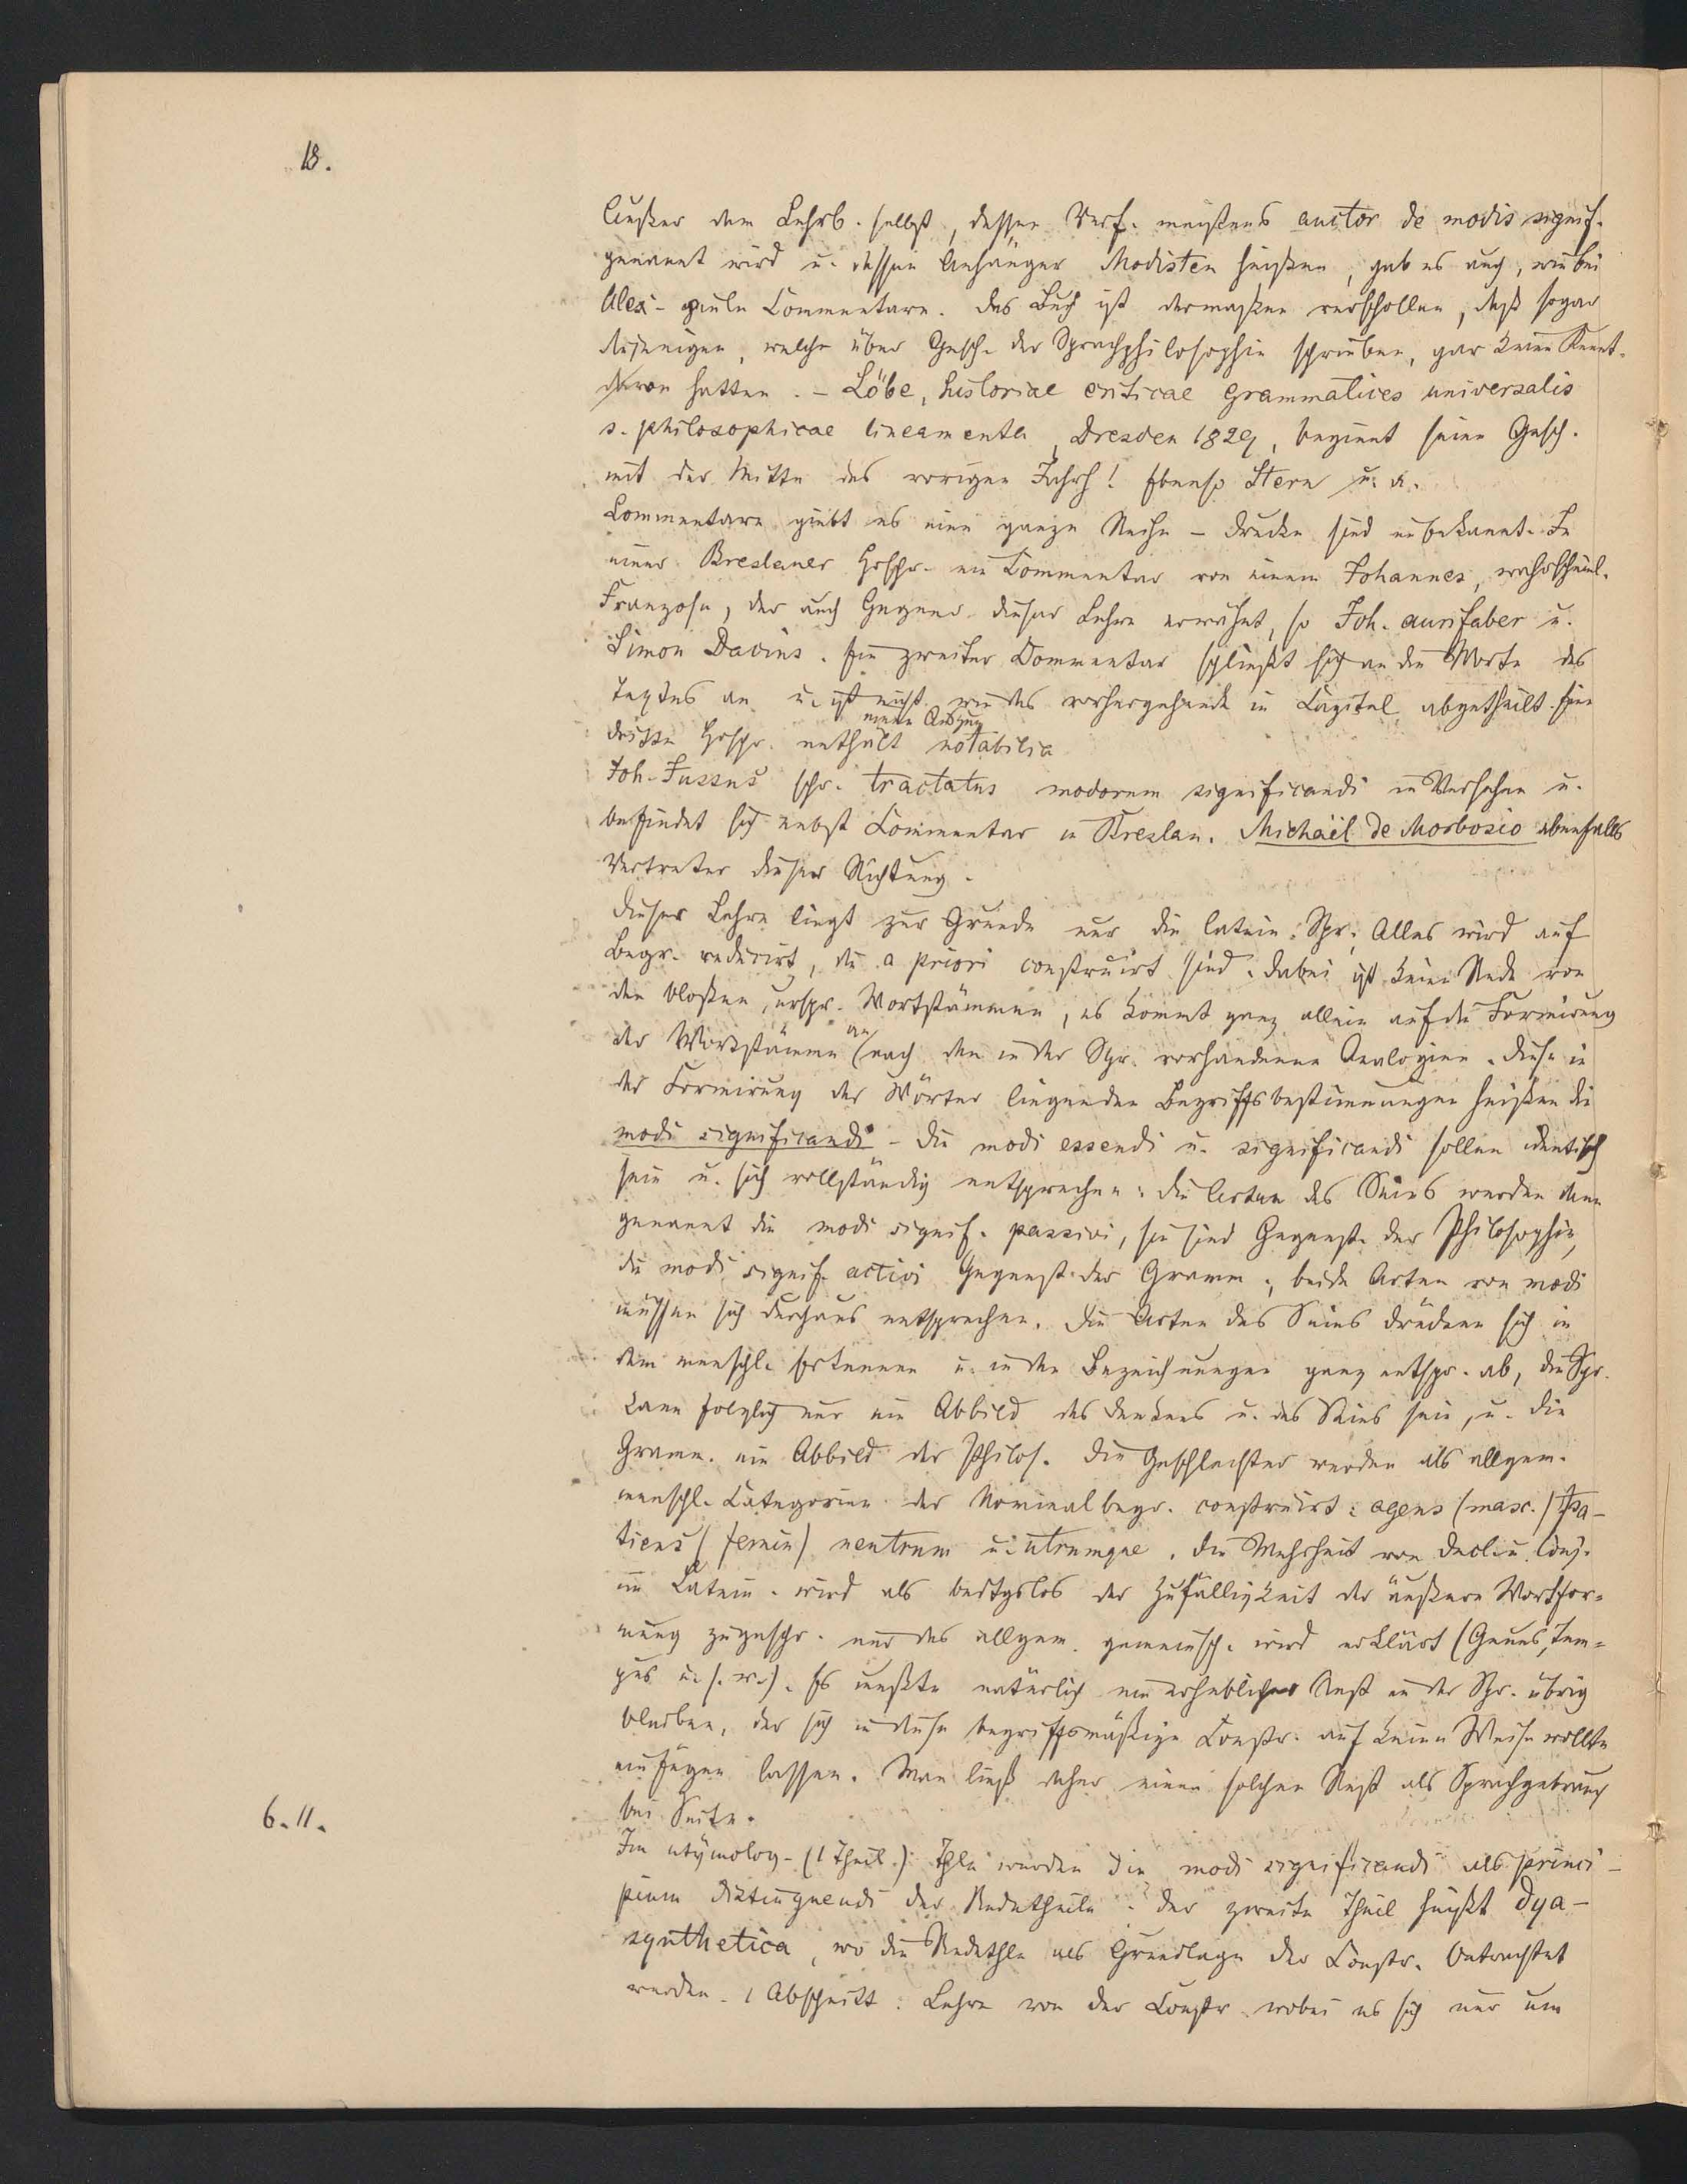 18.
Außer dem Lehrb. selbst, dessen Verf. meistens auctor de modis signif.
genannt wird u. dessen Anhänger Modisten heißen, gab es auch, wie bei
Alex. viele Commentare. Das Buch ist dermaßen verschollen, daß sogar
diejenigen, welche über Gesch. der Sprachphilosophie schrieben, gar keine Kennt.
davon hatten. - Löbe, historiae criticae grammatices universalis
s. philosophicae lineamenta, Dresden 1829, beginnt seine Gesch.
mit der Mitte des vorigen Jahrh! Ebenso Stern u. a.
Commentare giebt es eine ganze Reihe - Drucke sind unbekannt. In
einer Breslauer Hdschr. ein Commentar von einem Johannes, wahrscheinl.
Franzose, der auch Gegner dieser Lehre erwähnt, so Joh. aurifaber u.
Simon Dacius. Ein zweiter Commentar schließt sich an die Worte des
Textes an u. ist nicht wie das vorhergehende in Capitel abgetheilt. Eine
dritte Hdschr. enthält notabilia
Joh. Jussus schr. tractatus modorum significandi in Versen u.
befindet sich nebst Commentar in Breslau. Michaël de Morbosio ebenfalls
Vertreter dieser Richtung.
Dieser Lehre liegt zur Grunde nur die latein. Spr. Alles wird auf
Begr. reducirt, die a priori construirt sind. Dabei ist keine Rede von
den bloßen, urspr. Wortstämmen, es kommt ganz allein auf die Formirung
der Wortstämme an nach den in der Spr. vorhandenen Analogien. Diese in
der Formirung der Wörter liegenden Begriffsbestimmungen heißen die
modi significandi - Die modi essendi u. significandi sollen identisch
sein u. sich vollständig entsprechen: die Arten des Seins werden dann
genannt die modi signif. passivi, sie sind Gegenst. der Philosophie,
die modi signif. activi Gegenst. der Gramm.; beide Arten von modi
müssen sich durchaus entsprechen. Die Arten des Seins drücken sich in
dem menschl. Erkennen u. in den Bezeichnungen ganz entspr. ab, die Spr.
kann folglich nur ein Abbild des Denkens u. des Seins sein, u. die
Gramm. ein Abbild der Philos. Die Geschlechter werden als allgem.
menschl. Categorien der Nominalbegr. construirt: agens (masc.) pa-
tiens (femin) neutrum u. utrumque. Die Mehrheit von Decl. u. Conj.
im Latein. wird als bedtgslos der Zufälligkeit der äußern Wortfor-
mung zugeschr. nur das allgem. gemeinsch. wird erklärt (Genus, Tem-
pus u. s. w.). Es mußte natürlich ein erheblicher Rest in der Spr. übrig
bleiben, der sich in diese begriffsmäßige Constr. auf keine Weise wollte
einfügen lassen. Man ließ daher einen solchen Rest als Sprachgebrauch
bei Seite.
6. 11.
Im etymolog. (1 Theil.) Thle wurden die modi significandi als princi-
pium distinguendi der Redetheile. Der zweite Theil heißt dya-
synthetica, wo die Redethle als Grundlage der Constr. betrachtet
werden. 1 Abschnitt: Lehre von der Constr. wobei es sich nur um